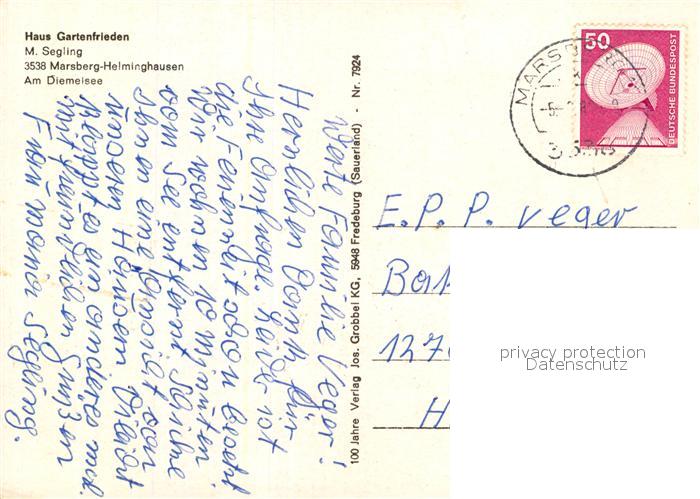 Haus Gartenfrieden
M. Segling
3538 Marsberg-Helminghausen
Am Diemelsee
Werte Familie Veger!
Herzlichen Dank für
Ihre Anfrage. Leider ist
die Ferienzeit schon besetzt
Wir wohnen 10 Minuten
vom See entfernt
Ihnen eine von
anderen Häusern Vileicht
klappt es ein anderes mal.
mit freundlichen Grüßen
Frau Maria Segling.
100 Jahre Verlag Jos. Grobbel KG, 5948 Fredeburg (Sauerland) - Nr. 7924
MARSBERG
50
DEUTSCHE BUNDESPOST
E. P. P. veger
127
H
privacy protection
Datenschutz